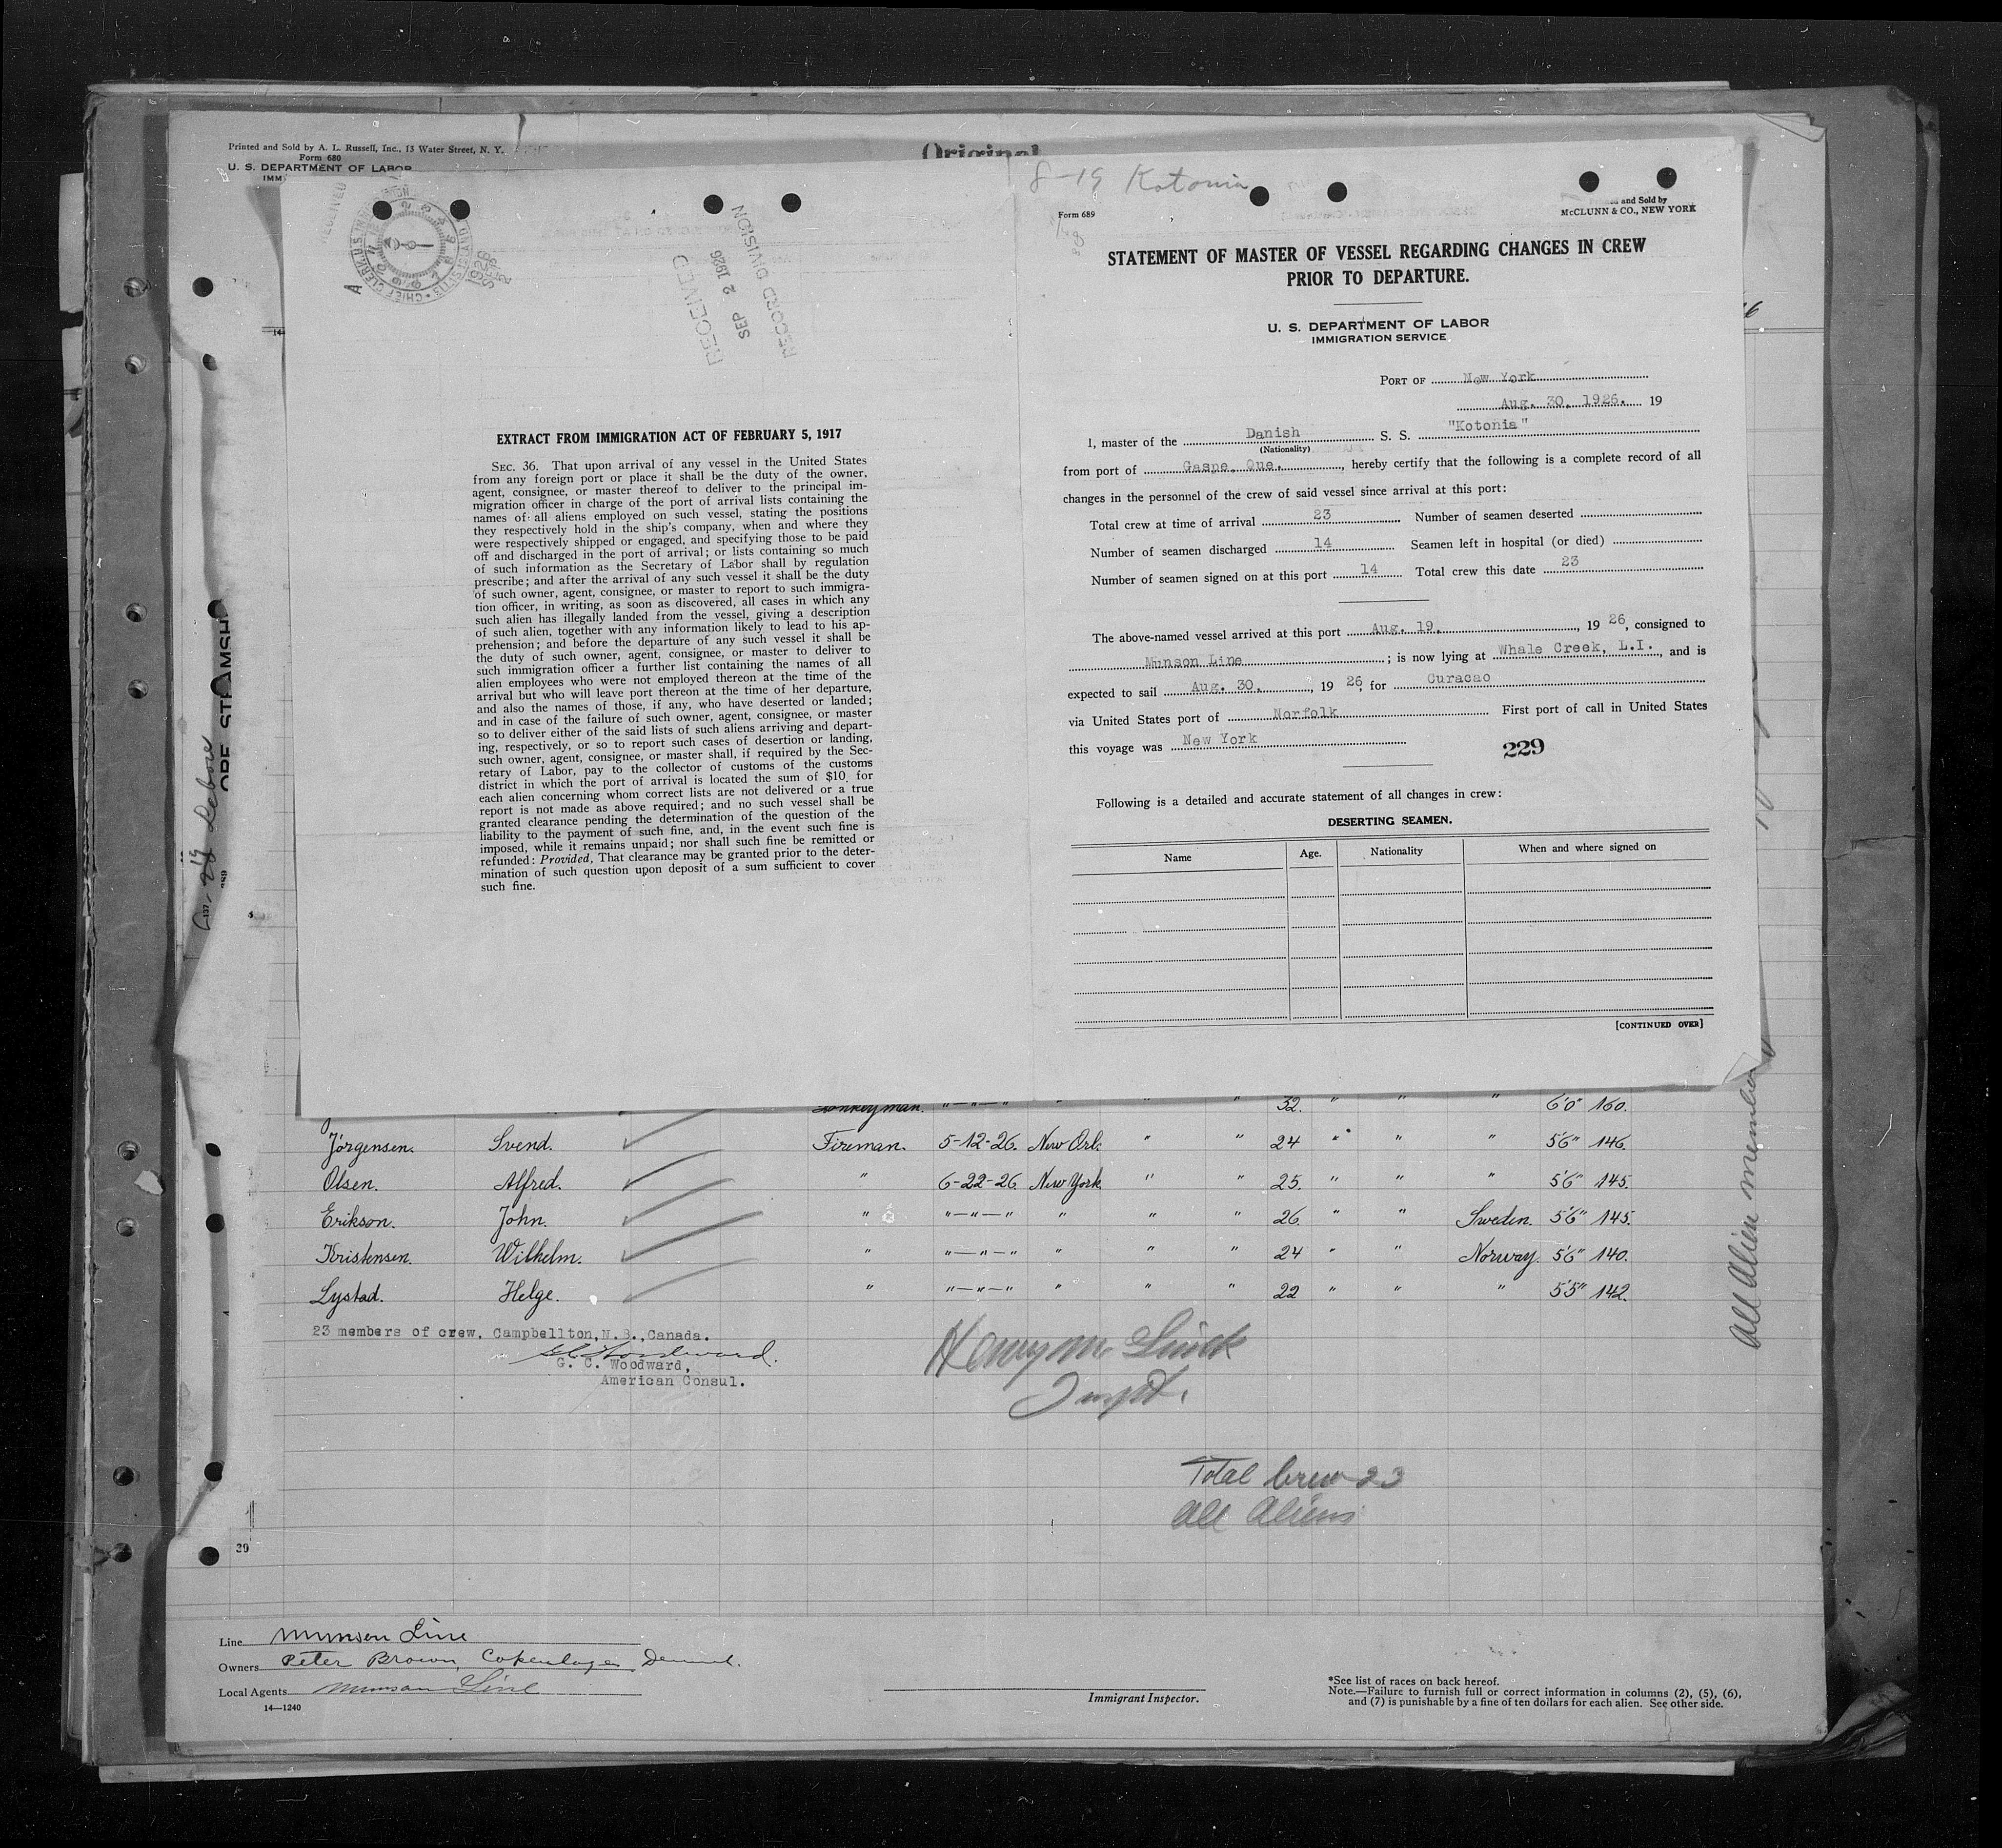 Printed and Sold by A. L. Russell, Inc., 13 Water Street, N. Y.
Form 680
U. S. DEPARTMENT OF LABOR
IMM
Original
RECEIVED
SEP 2 1926
RECORD DIVISION
EXTRACT FROM IMMIGRATION ACT OF FEBRUARY 5, 1917
SEC. 36. That upon arrival of any vessel in the United States
from any foreign port or place it shall be the duty of the owner,
agent, consignee, or master thereof to deliver to the principal im-
migration officer in charge of the port of arrival lists containing the
names of all aliens employed on such vessel, stating the positions
they respectively hold in the ship's company, when and where they
were respectively shipped or engaged, and specifying those to be paid
off and discharged in the port of arrival; or lists containing so much
of such information as the Secretary of Labor shall by regulation
prescribe; and after the arrival of any such vessel it shall be the duty
of such owner, agent, consignee, or master to report to such immigra-
tion officer, in writing, as soon as discovered, all cases in which any
such alien has illegally landed from the vessel, giving a description
of such alien, together with any information likely to lead to his ap-
prehension; and before the departure of any such vessel it shall be
the duty of such owner, agent, consignee, or master to deliver to
such immigration officer a further list containing the names of all
alien employees who were not employed thereon at the time of the
arrival but who will leave port thereon at the time of her departure,
and also the names of those, if any, who have deserted or landed;
and in case of the failure of such owner, agent, consignee, or master
so to deliver either of the said lists of such aliens arriving and depart-
ing, respectively, or so to report such cases of desertion or landing,
such owner, agent, consignee, or master shall, if required by the Sec-
retary of Labor, pay to the collector of customs of the customs
district in which the port of arrival is located the sum of $10 for
each alien concerning whom correct lists are not delivered or a true
report is not made as above required; and no such vessel shall be
granted clearance pending the determination of the question of the
liability to the payment of such fine, and, in the event such fine is
imposed, while it remains unpaid; nor shall such fine be remitted or
refunded: Provided, That clearance may be granted prior to the deter-
mination of such question upon deposit of a sum sufficient to cover
such fine.
8-19 Kotonia
Form 689
and Sold by
McCLUNN & CO., NEW YORK
STATEMENT OF MASTER OF VESSEL REGARDING CHANGES IN CREW
PRIOR TO DEPARTURE.
U. S. DEPARTMENT OF LABOR
IMMIGRATION SERVICE
PORT OF New York
Aug. 30, 1926. 19
I, master of the Danish S. S. "Kotonia"
(Nationality)
from port of Gaspe, Que., hereby certify that the following is a complete record of all
changes in the personnel of the crew of said vessel since arrival at this port:
Total crew at time of arrival 23 Number of seamen deserted
Number of seamen discharged 14 Seamen left in hospital (or died)
Number of seamen signed on at this port 14 Total crew this date 23
The above-named vessel arrived at this port Aug. 19, 19 26, consigned to
Munson Line; is now lying at Whale Creek, L.I., and is
expected to sail Aug. 30, 19 26, for Curacao
via United States port of Norfolk First port of call in United States
this voyage was New York
229
Following is a detailed and accurate statement of all changes in crew:
DESERTING SEAMEN.
Name Age. Nationality When and where signed on
[CONTINUED OVER]
Donkeyman. "—"—" " " " 32. " " " 6'0" 160.
Jörgensen. Svend. Fireman. 5-12-26. New Orl. " " 24 " " " 5'6" 146.
Olsen. Alfred. " 6-22-26 New York " " 25. " " " 5'6" 145.
Erikson. John. " "—"—" " " " 26 " " Sweden. 5'6" 145.
Kristensen. Wilhelm. " "—"—" " " " 24 " " Norway. 5'6" 140.
Lystad. Helge. " "—"—" " " " 22 " " " 5'5" 142.
23 members of crew. Campbellton, N.B., Canada.
G. C. Woodward,
American Consul.
Henry M.
Inspt.
Total Crew 23
All Aliens
30
All Alien members
Line Munson Line
Owners Peter Brown, Copenhagen,
Local Agents Munson Line
14—1240
Immigrant Inspector.
*See list of races on back hereof.
Note.—Failure to furnish full or correct information in columns (2), (5), (6),
and (7) is punishable by a fine of ten dollars for each alien. See other side.